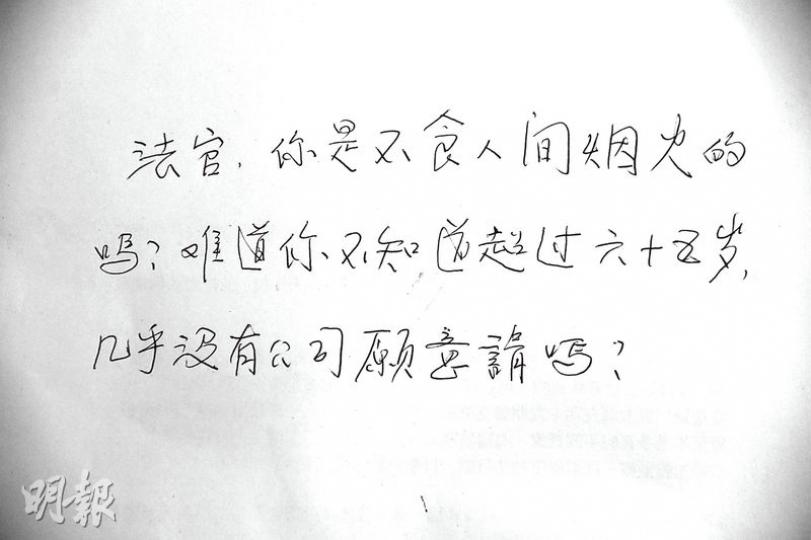 法官，你是不食人间烟火的
吗？难道你不知道超过六十五岁，
几乎没有公司愿意請吗？
明報